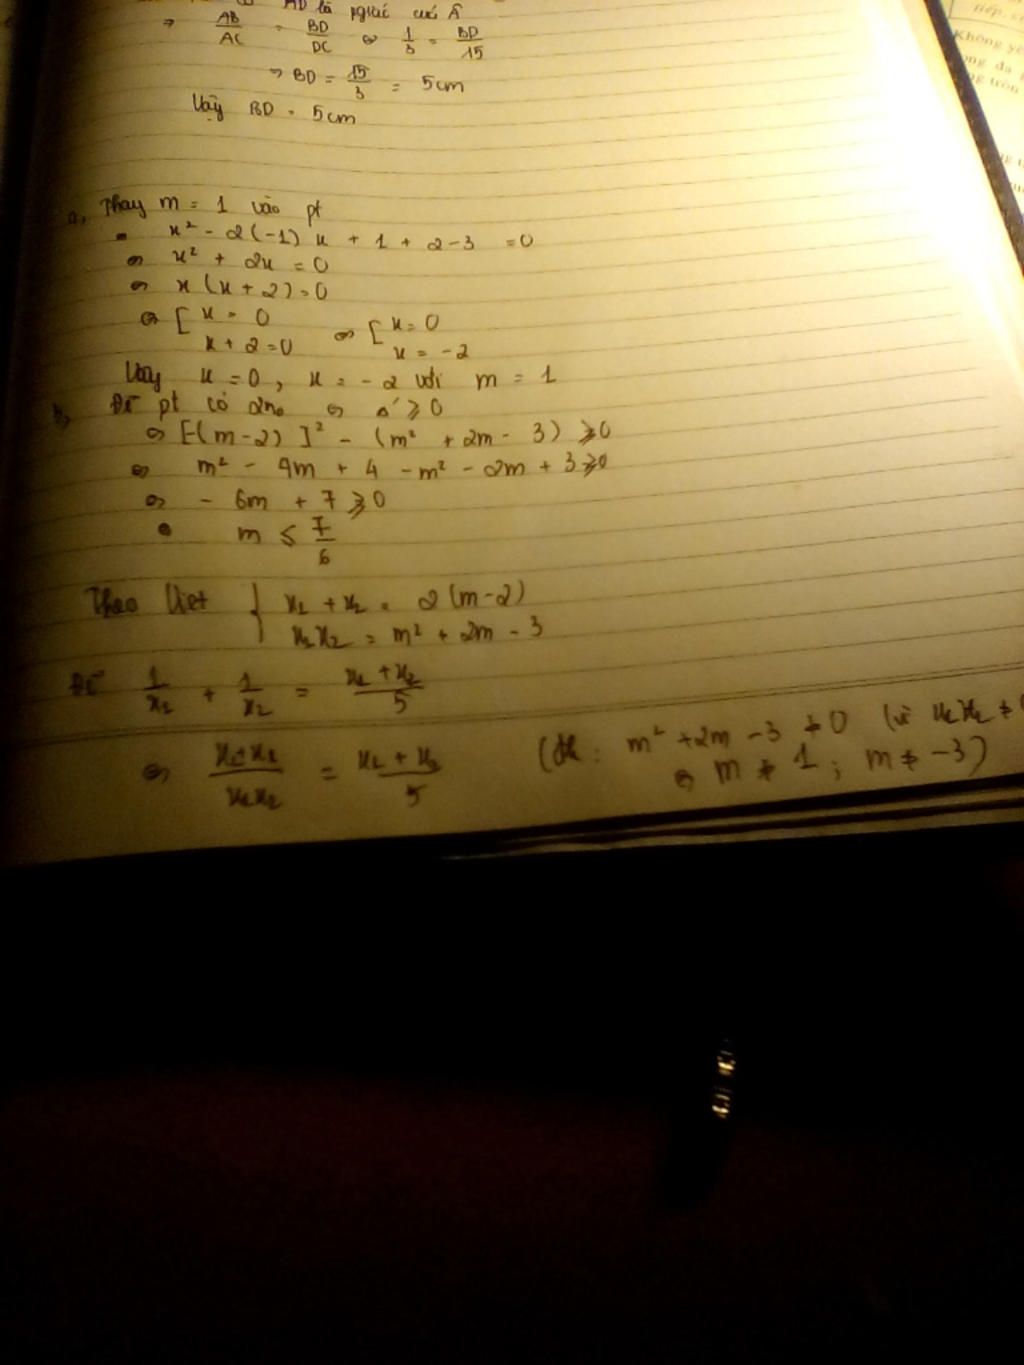 AD là pgiác của Â
⇒ AB/AC = BD/DC ⇔ 1/3 = BD/15
⇒ BD = 15/3 = 5cm
Vậy BD = 5cm
a, Thay m = 1 vào pt
x² - 2(-1)x + 1 + 2 - 3 = 0
⇔ x² + 2x = 0
⇔ x(x + 2) = 0
⇔ [ x = 0 ⇔ [ x = 0
x + 2 = 0 x = -2
Vậy x = 0, x = -2 với m = 1
b, Để pt có 2no ⇔ Δ' ≥ 0
⇔ [-(m-2)]² - (m² + 2m - 3) ≥ 0
⇔ m² - 4m + 4 - m² - 2m + 3 ≥ 0
⇔ - 6m + 7 ≥ 0
m ≤ 7/6
Theo Viet { x₁ + x₂ = 2(m-2)
x₁x₂ = m² + 2m - 3
Để 1/x₁ + 1/x₂ = x₁ + x₂/5
⇔ x₁+x₂/x₁x₂ = x₁ + x₂/5 (đk: m² + 2m - 3 ≠ 0 (vì x₁x₂ ≠ 0
⇔ m ≠ 1; m ≠ -3)
tiếp
Không